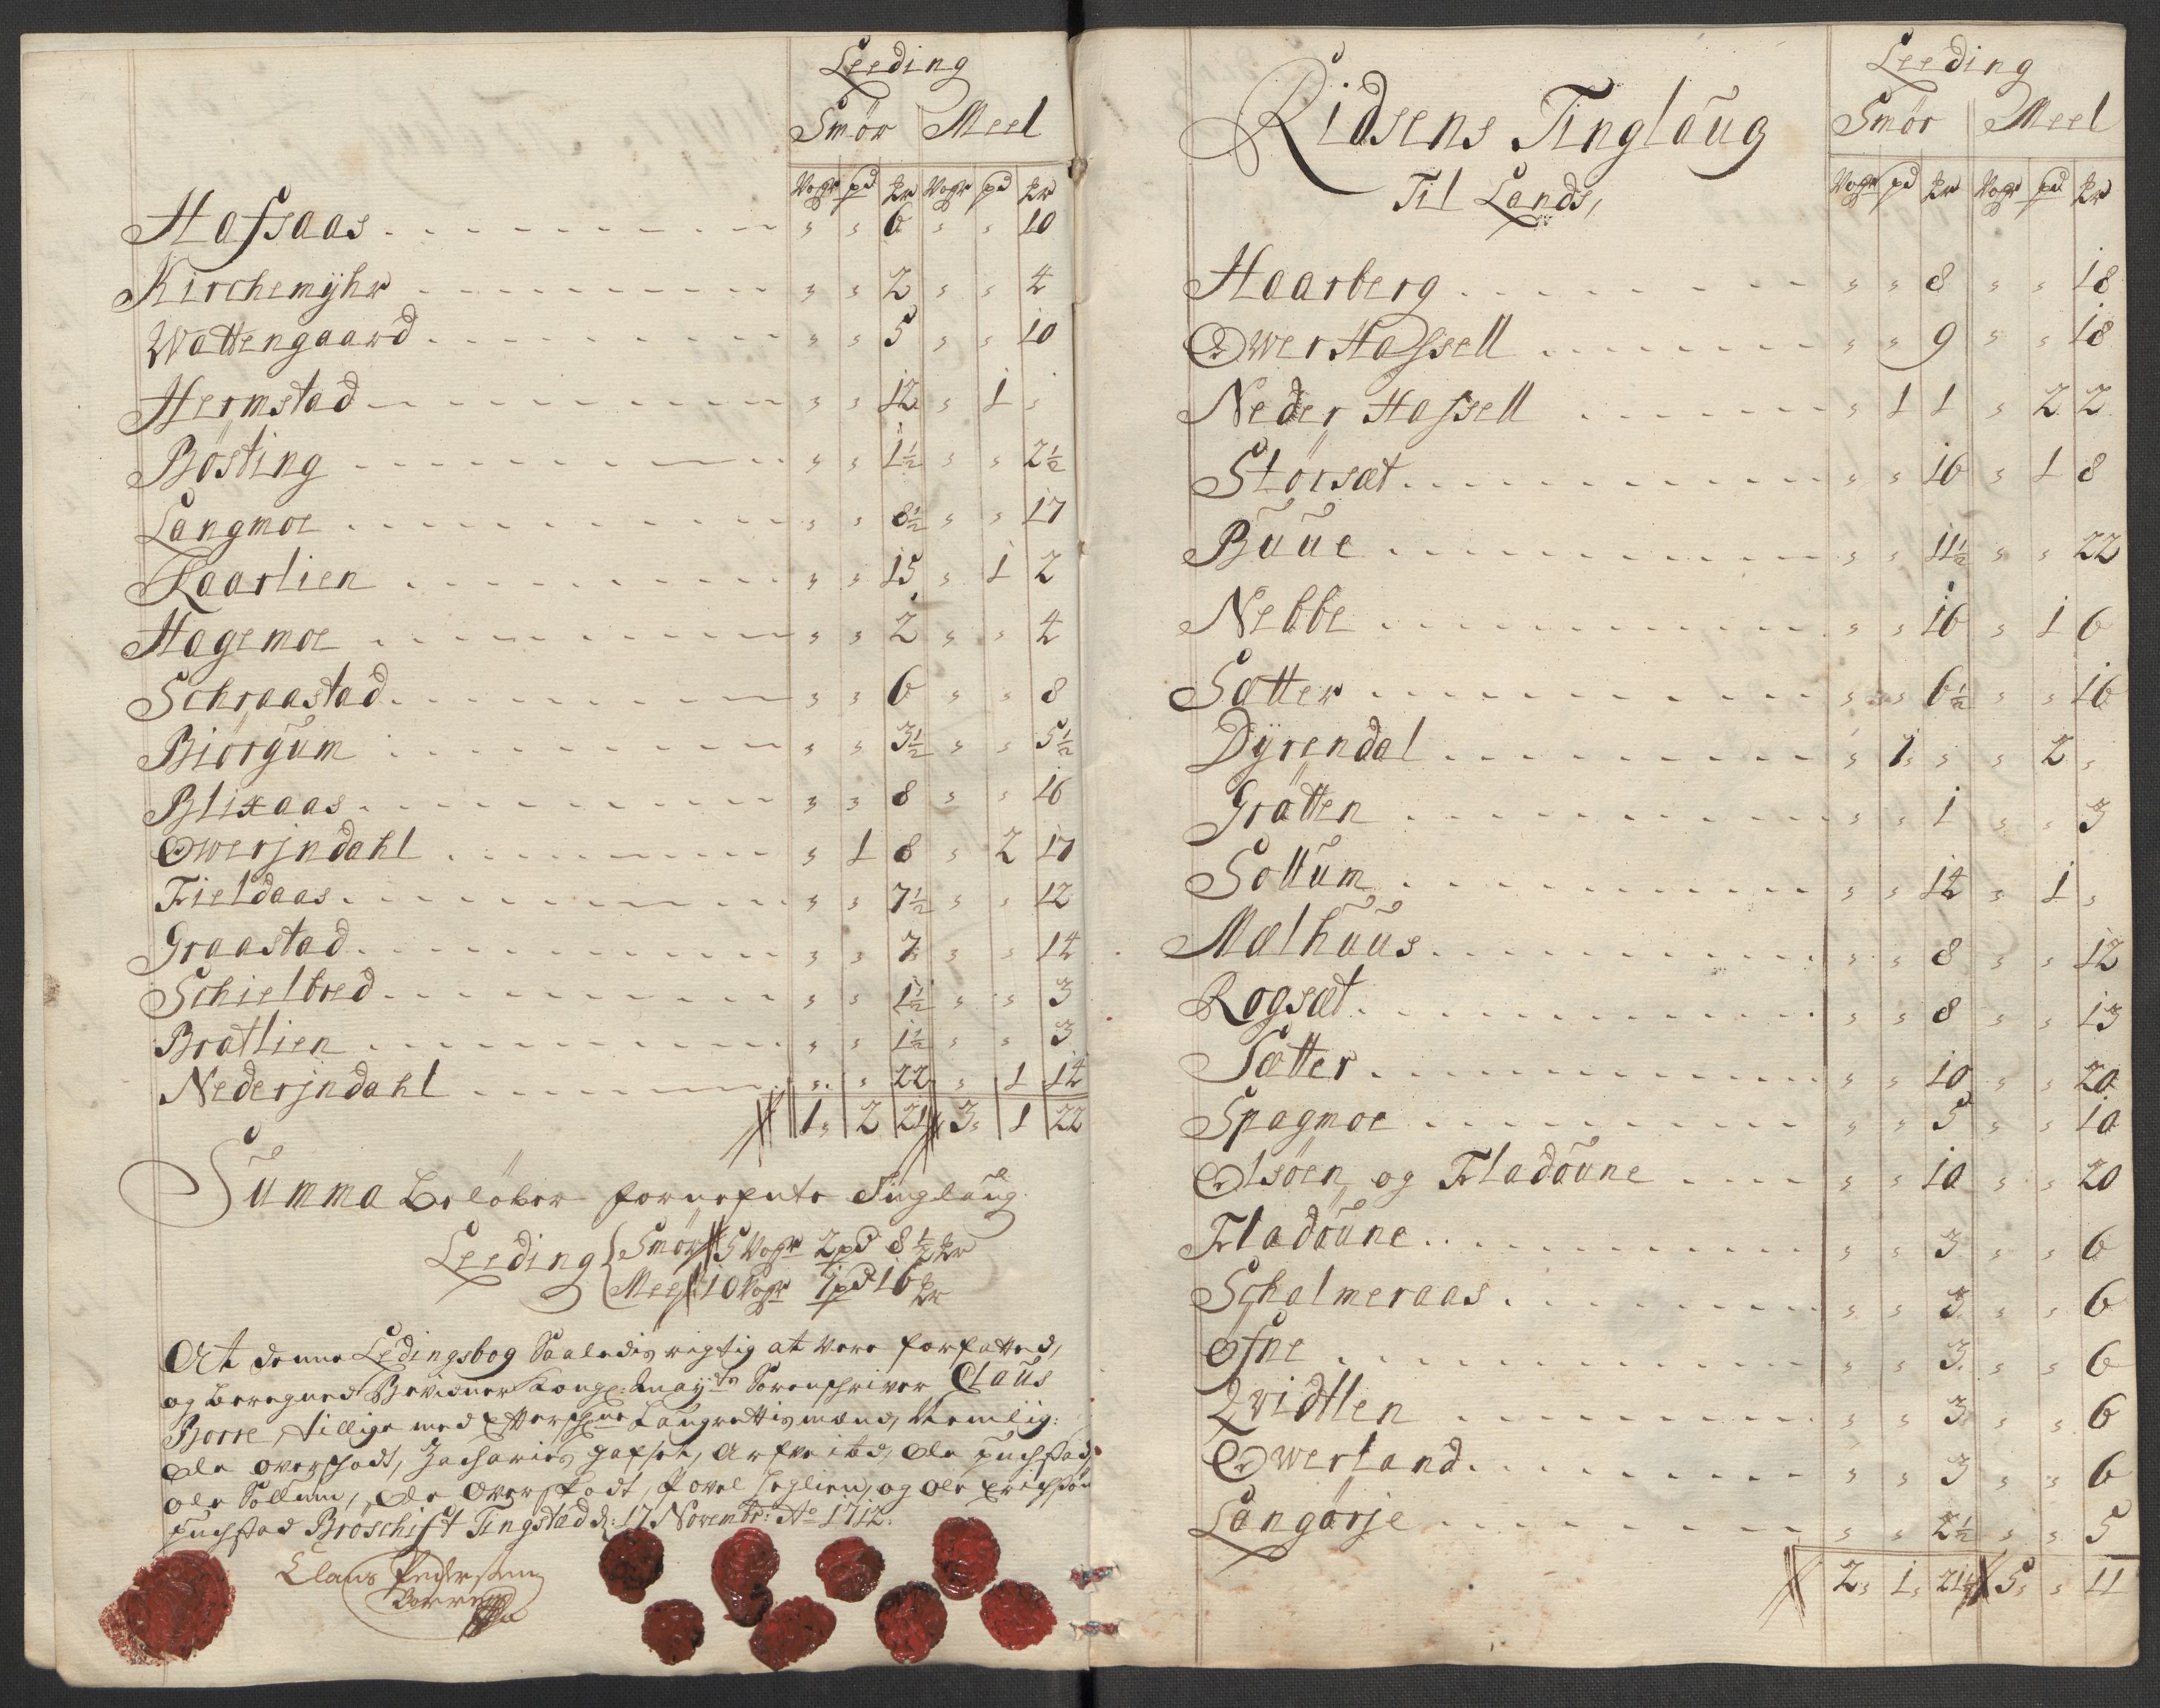 Leeding
Smör Meel
Vogr pd Mr Vogr pd Mr
Hafsaas - - - - " " 6 " " 10
Kirchemÿhr - - - - " " 2 " " 4
Wattengaard - - - - " " 5 " " 10
Hermstad - - - - " " 12 " 1 "
Bösting - - - - " " 1½ " " 2½
Langmoe - - - - " " 8½ " " 17
Laarlien - - - - " " 15 " 1 2
Hagemoe - - - - " " 2 " " 4
Schraastad - - - - " " 6 " " 8
Biörgum - - - - " " 3½ " " 5½
Blixaas - - - - " " 8 " " 16
Owerjndahl - - - - " 1 8 " 2 17
Fieldaas - - - - " " 7½ " " 12
Graastad - - - - " " 7 " " 14
Schielbred - - - - " " 1½ " " 3
Bratlien - - - - " " 1½ " " 3
Nederjndahl - - - - " " 22 " 1 14
1 2 21 3 1 22
Summa Belöber fornefnte Tinglaug
Leeding Smör 5 Vogr 2 pd 8½ Mr
Meel 10 Vogr 1 pd 16 Mr
At denne Ledingsbog Saaledis rigtig at Vere forfatted,
og beregned Bevidner Kongl: Mayts Sorenschriver Claus
Borre, tillige med Efterschrne Laugrettismænd, Nemlig:
Ole Overschodt, Zacharies Hafsell, Ole
Ole Sollum, Ole Overschodt, Povel og Ole
Bröschift Tingsted d: 17 Novembr: Ao 1712.
Claus Pedersen
Borre
Ridsens Tinglaug
Til Lands,
Leeding
Smör Meel
Vogr pd Mr Vogr pd Mr
Haarberg - - - - " " 8 " " 18
Ower Hassell - - - - " " 9 " " 18
Neder Hassell - - - - " 1 1 " 2 2
Störsæt - - - - " " 16 " 1 8
Buue - - - - " " 11½ " " 22
Nebbe - - - - " " 16 " 1 6
Sætter - - - - " " 6½ " " 16
Dÿrendal - - - - " 1 " " 2 "
Gratten - - - - " " 1 " " 3
Sollum - - - - " " 14 " 1 "
Mælhuus - - - - " " 8 " " 12
Rogsæt - - - - " " 8 " " 13
Sætter - - - - " " 10 " " 20
Spagmoe - - - - " " 5 " " 10
Olsöen og Fladöune - - - - " " 10 " " 20
Fladöune - - - - " " 3 " " 6
Schalmeraas - - - - " " 3 " " 6
Ofne - - - - " " 3 " " 6
Qvidtlen - - - - " " 3 " " 6
Owerland - - - - " " 3 " " 6
Langörje - - - - " " 2½ " " 5
2 1 21½ 5 " 11